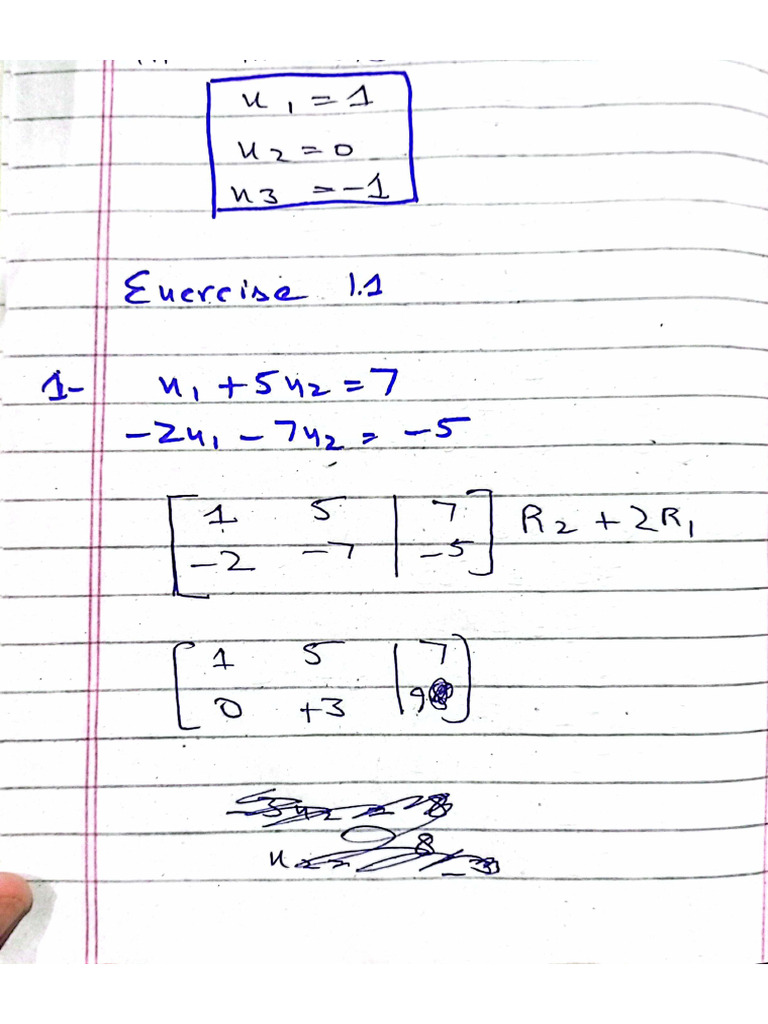 x₁ = 1
x₂ = 0
x₃ = -1
Exercise 1.1
1- x₁ + 5x₂ = 7
-2x₁ - 7x₂ = -5
[ 1 5 | 7 ] R₂ + 2R₁
[ -2 -7 | -5 ]
[ 1 5 | 7 ]
[ 0 +3 | 9 ]